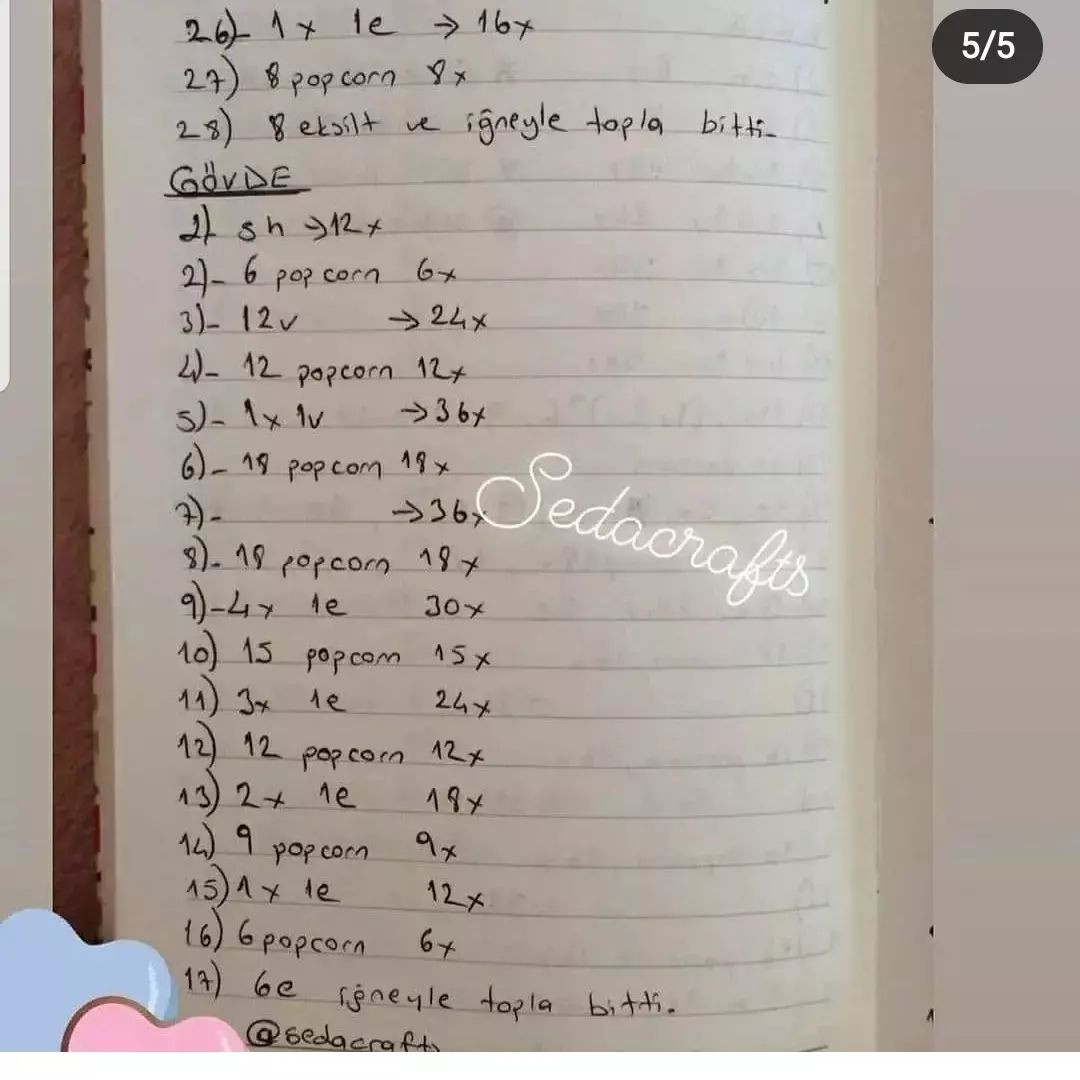 26)- 1x 1e → 16x
5/5
27) 8 popcorn 8x
28) 8 eksilt ve iğneyle topla bitti-
GÖVDE
1) sh →12x
2)- 6 popcorn 6x
3)- 12v → 24x
4)- 12 popcorn 12x
5)- 1x 1v →36x
6)- 18 popcorn 18x
7)- →36x
Sedacrafts
8)- 18 popcorn 18x
9)-4x 1e 30x
10) 15 popcorn 15x
11) 3x 1e 24x
12) 12 popcorn 12x
13) 2x 1e 18x
14) 9 popcorn 9x
15) 1x 1e 12x
16) 6 popcorn 6x
17) 6e iğneyle topla bitti.
@sedacrafts